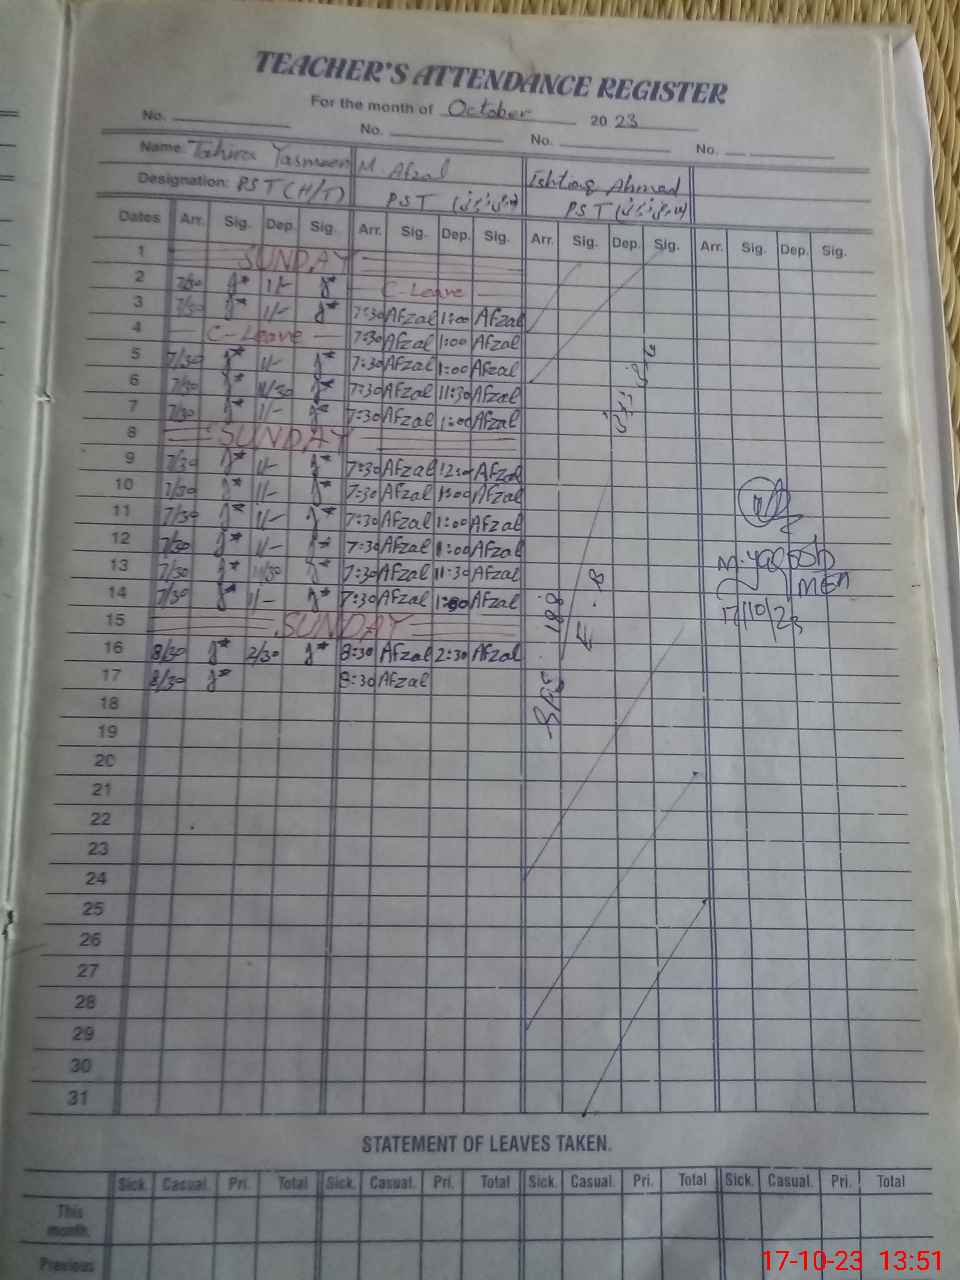 TEACHER'S ATTENDANCE REGISTER
For the month of October 2023
No. No. No. No.
Name: Tahira Yasmeen M. Afzal Ishtiaq Ahmad
Designation: PST (H/T) PST PST
Dates Arr. Sig. Dep. Sig. Arr. Sig. Dep. Sig. Arr. Sig. Dep. Sig. Arr. Sig. Dep. Sig.
1 SUNDAY
2 7/30 1/- C-Leave
3 7/30 1/- 7:30 Afzal 1:00 Afzal
4 C-Leave 7:30 Afzal 1:00 Afzal
5 7/30 1/- 7:30 Afzal 1:00 Afzal
6 7/30 11/30 7:30 Afzal 11:30 Afzal
7 7/30 1/- 7:30 Afzal 1:00 Afzal
8 SUNDAY
9 7/30 1/- 7:30 Afzal Afzal
10 7/30 1/- 7:30 Afzal 1:00 Afzal
11 7/30 1/- 7:30 Afzal 1:00 Afzal
12 7/30 1/- 7:30 Afzal 1:00 Afzal
13 7/30 11/30 7:30 Afzal 11:30 Afzal
14 7/30 1/- 7:30 Afzal 1:00 Afzal
15 SUNDAY
16 8/30 2/30 8:30 Afzal 2:30 Afzal
17 8/30 8:30 Afzal
18
19
20
21
22
23
24
25
26
27
28
29
30
31
M. Yaqoob
MEA
17/10/23
STATEMENT OF LEAVES TAKEN.
Sick. Casual. Pri. Total Sick. Casual. Pri. Total Sick. Casual. Pri. Total Sick. Casual. Pri. Total
This
month.
Previous
17-10-23 13:51